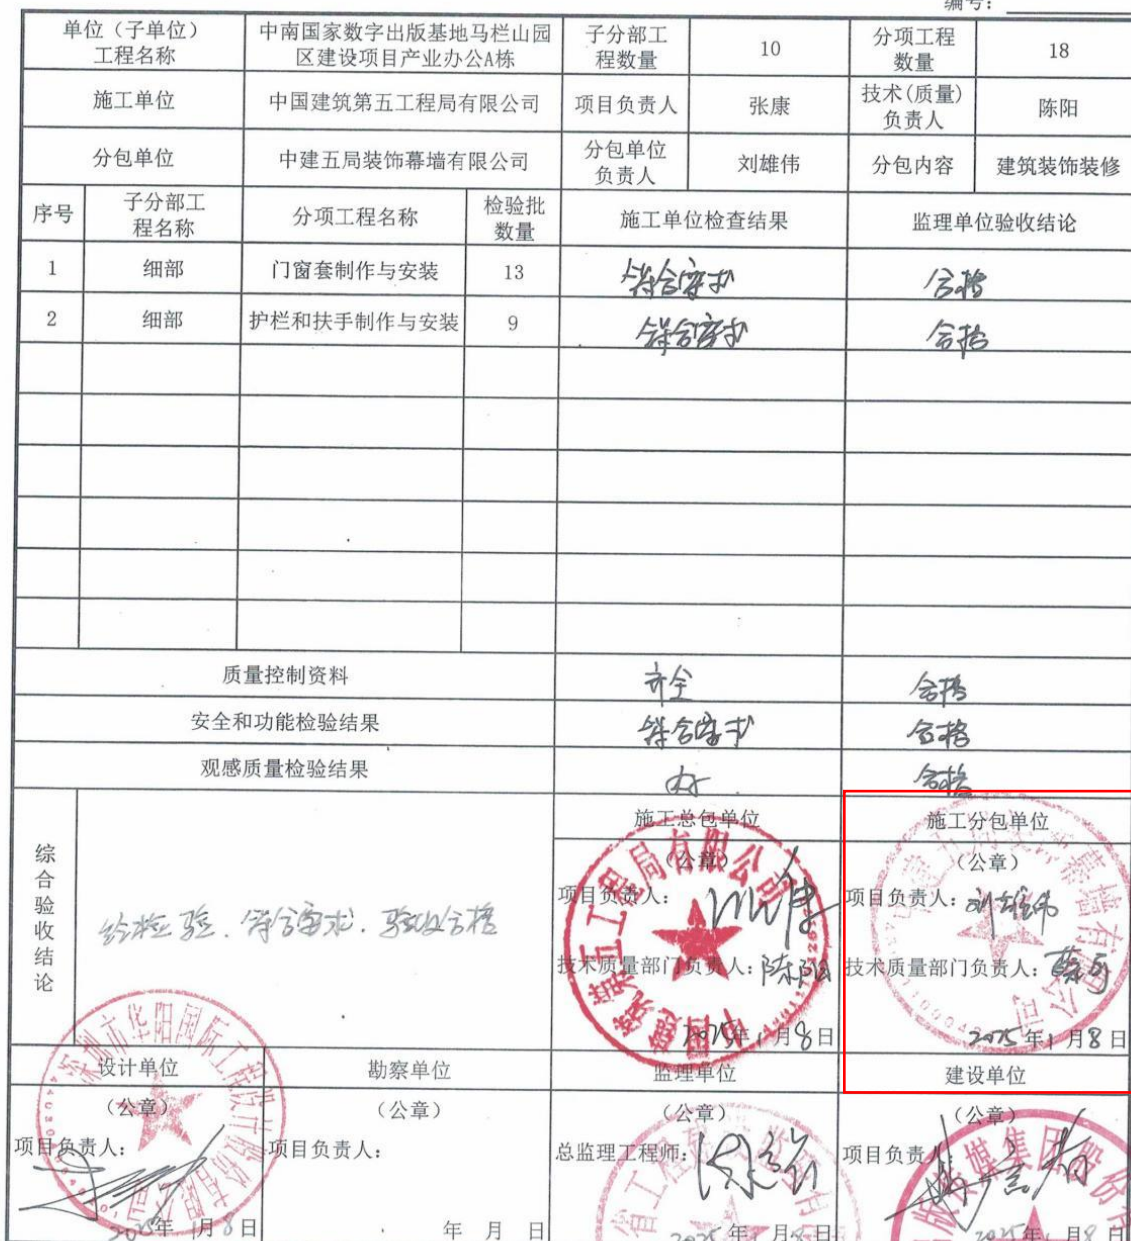 编号：
单位（子单位）
工程名称
中南国家数字出版基地马栏山园
区建设项目产业办公A栋
子分部工
程数量
10
分项工程
数量
18
施工单位
中国建筑第五工程局有限公司
项目负责人
张康
技术(质量)
负责人
陈阳
分包单位
中建五局装饰幕墙有限公司
分包单位
负责人
刘雄伟
分包内容
建筑装饰装修
序号
子分部工
程名称
分项工程名称
检验批
数量
施工单位检查结果
监理单位验收结论
1
细部
门窗套制作与安装
13
符合要求
合格
2
细部
护栏和扶手制作与安装
9
符合要求
合格
质量控制资料
齐全
合格
安全和功能检验结果
符合要求
合格
观感质量检验结果
好
合格
综合验收结论
经检验.符合要求.验收合格
施工总包单位
（公章）
项目负责人：
技术质量部门负责人：陈阳
2025年1月8日
施工分包单位
（公章）
项目负责人：刘雄伟
技术质量部门负责人：
2025年1月8日
设计单位
（公章）
项目负责人：
2025年1月8日
勘察单位
（公章）
项目负责人：
年 月 日
监理单位
（公章）
总监理工程师：
2025年1月8日
建设单位
（公章）
项目负责人
2025年1月8日